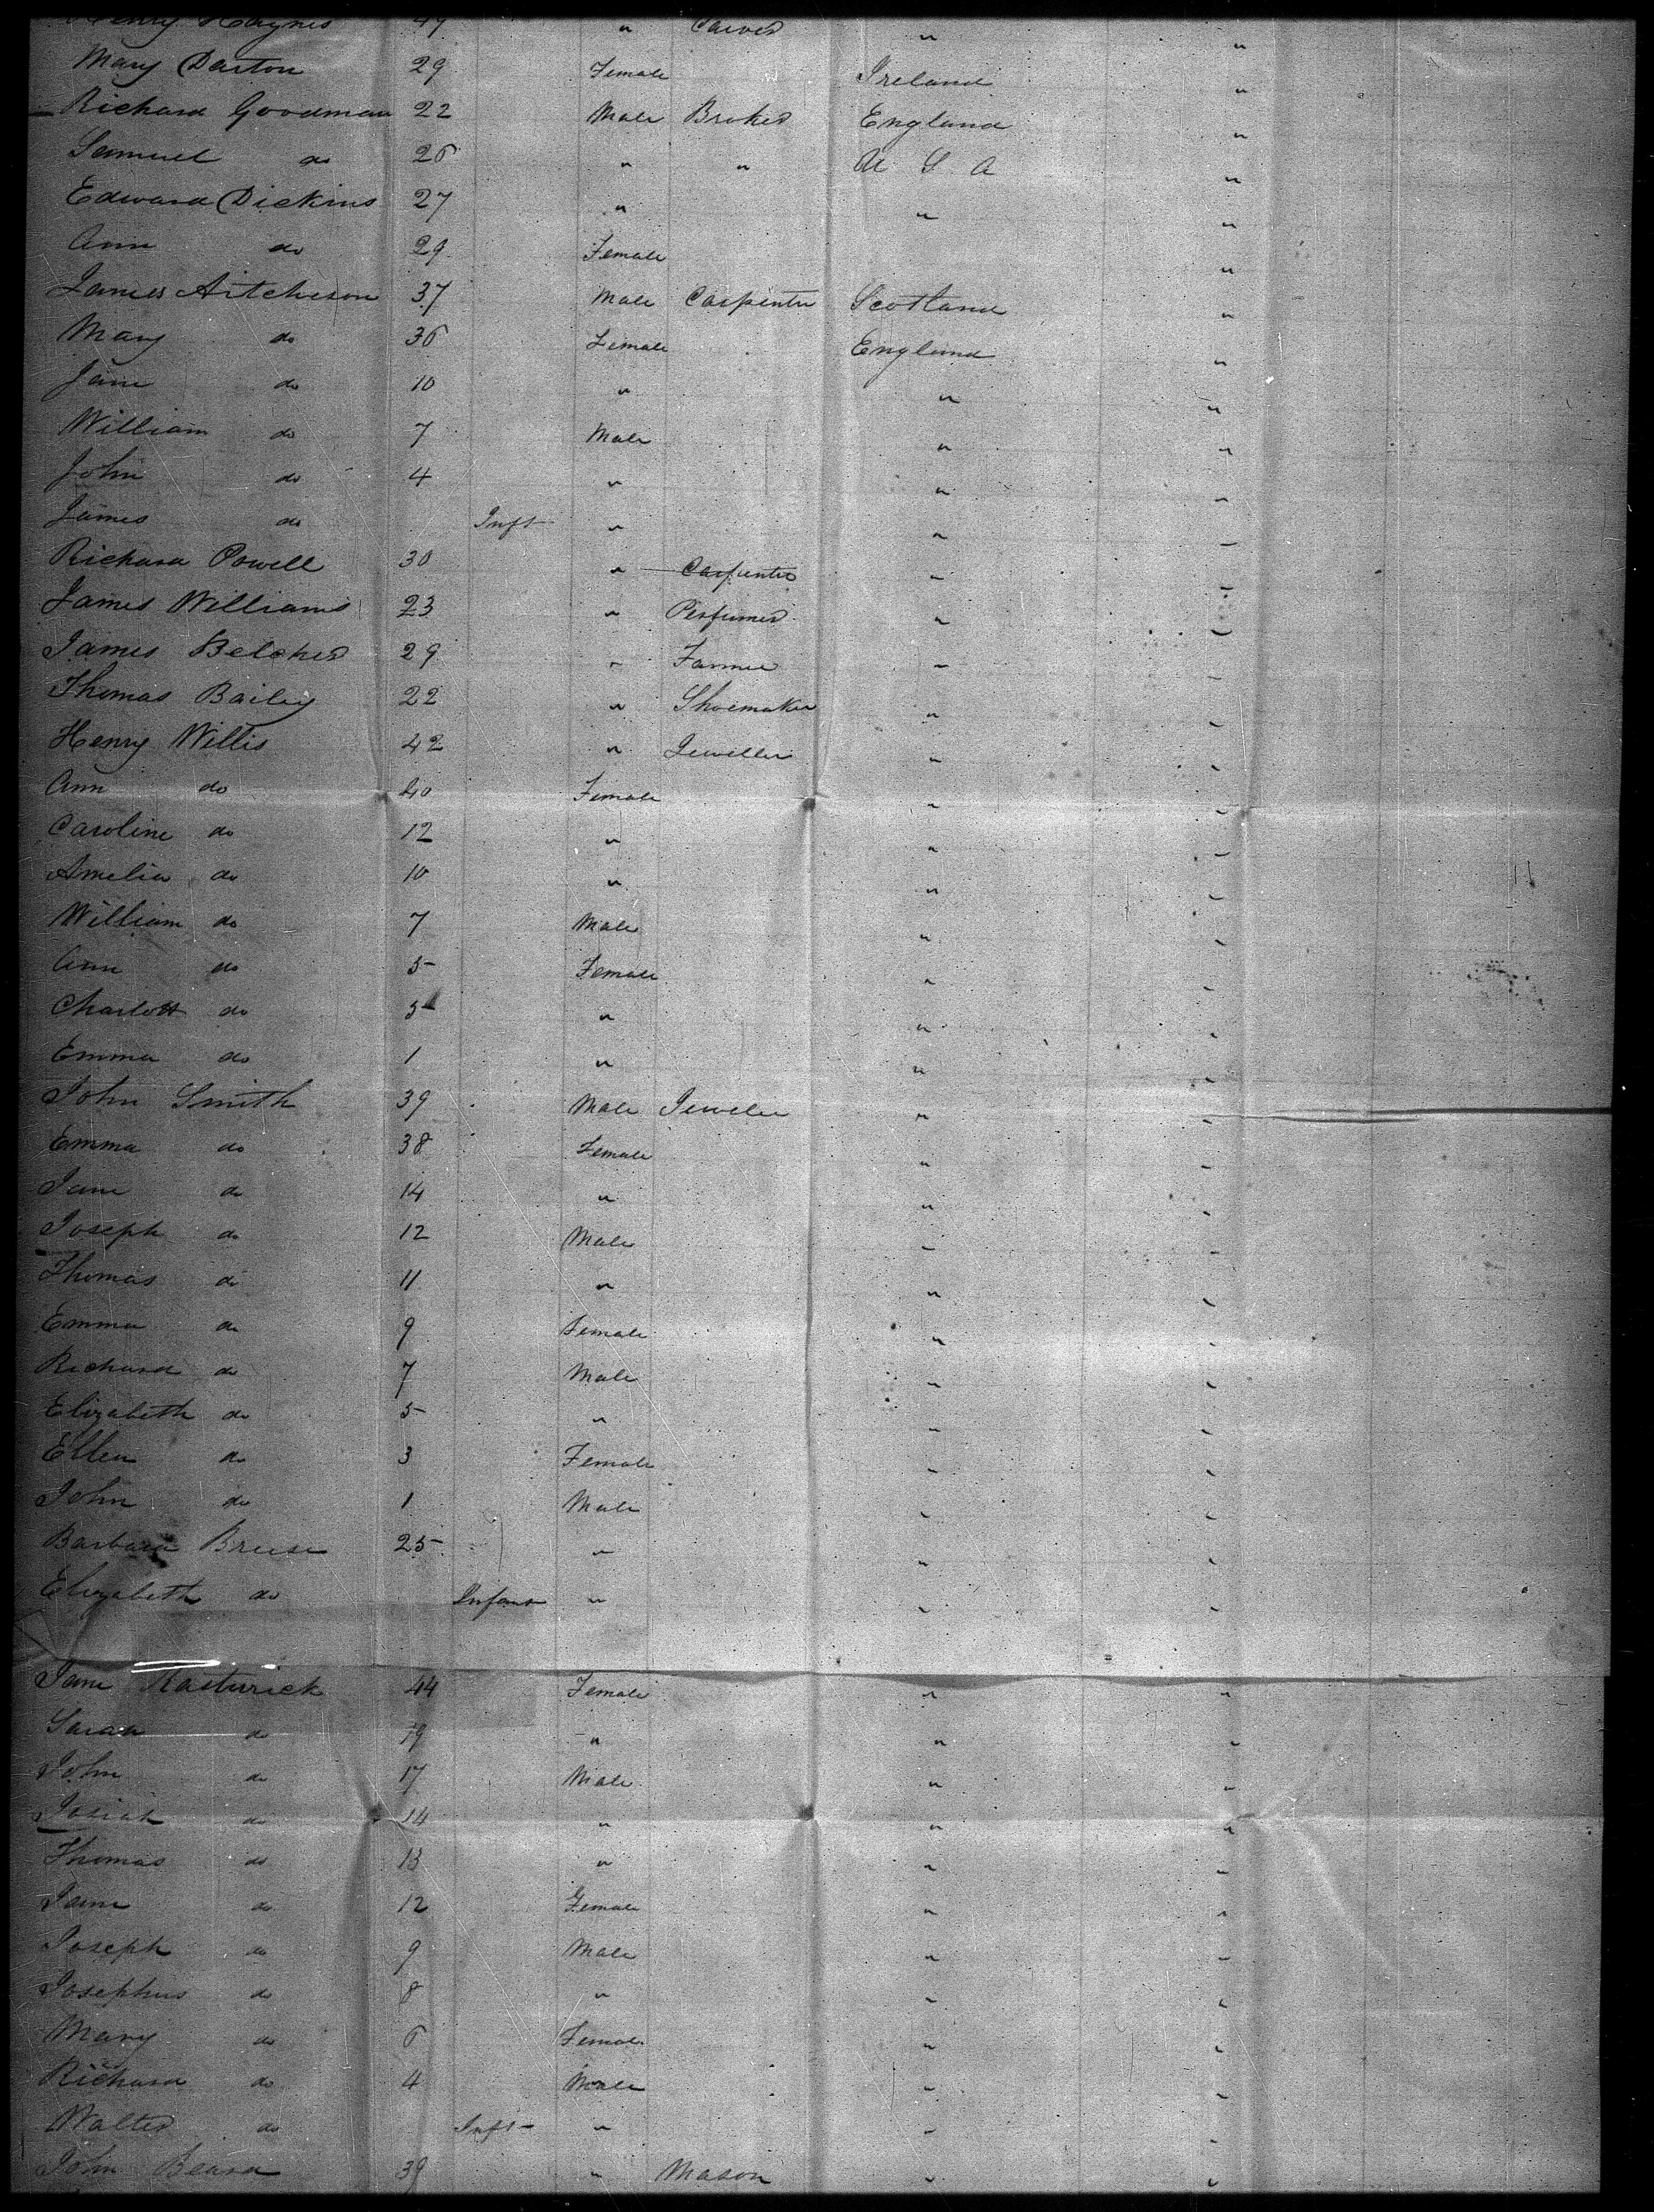 Henry Haynes 49 " Carver " "
Mary Darton 29 Female Ireland "
Richard Goodman 22 Male Broker England "
Samuel do 26 " " U S A "
Edward Dickins 27 " " "
Ann do 29 Female "
James Aitcheson 37 Male Carpenter Scotland "
Mary do 36 Female England "
Jane do 10 " " "
William do 7 Male " "
John do 4 " " "
James do Inft " " "
Richard Powell 30 " Carpenter " "
James Williams 23 " Perfumer " "
James Belcher 29 " Farmer " "
Thomas Bailey 22 " Shoemaker " "
Henry Willis 42 " Jeweller " "
Ann do 40 Female " "
Caroline do 12 " " "
Amelia do 10 " " "
William do 7 Male " "
Ann do 5 Female " "
Charlott do 5 " " "
Emma do 1 " " "
John Smith 39 Male Jeweler " "
Emma do 38 Female " "
Jane do 14 " " "
Joseph do 12 Male " "
Thomas do 11 " " "
Emma do 9 Female " "
Richard do 7 Male " "
Elizabeth do 5 " " "
Ellen do 3 Female " "
John do 1 Male " "
Barbara 25 " " "
Elizabeth do Infant " " "
Jane Rasturick 44 Female " "
Sarah do 19 " " "
John do 17 Male " "
Josiah do 14 " " "
Thomas do 13 " " "
Jane do 12 Female " "
Joseph do 9 Male " "
Josephus do 8 " " "
Mary do 6 Female " "
Richard do 4 Male " "
Walter do Inft " " "
John Beard 39 " Mason " "